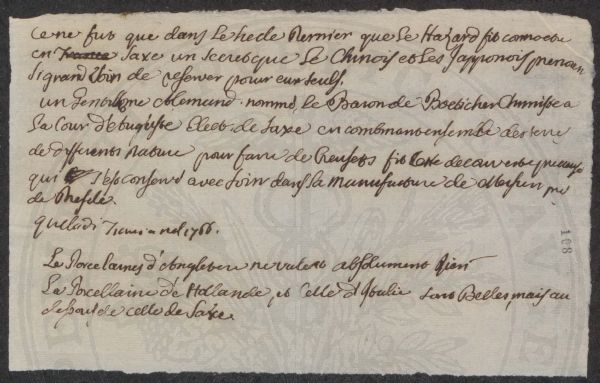 Ce ne fut que dans Le siecle Dernier que Le Hazard fit connoctre
en France Saxe un secret que Le Chinois et Les Japponois prenoien
si grand soin de reserver pour eux seuls.
un gentilhome allemand nommé, le Baron de Boeticher Chimiste a
la Cour d'Auguste Elect. de Saxe en combinant ensemble des terre
de differents Nature pour faire de Creusets fit Cette decouverte precieuse
qui s'est conservé avec soin dans la Manufacture de Meissen pré
de Dresde.
1766.
Le Porcelaines d'Angleterre ne valent absolument Rien
La Porcellaine de Hollande, et Celle d'Italie sont Belles, mais au
dessous de celle de Saxe.
108